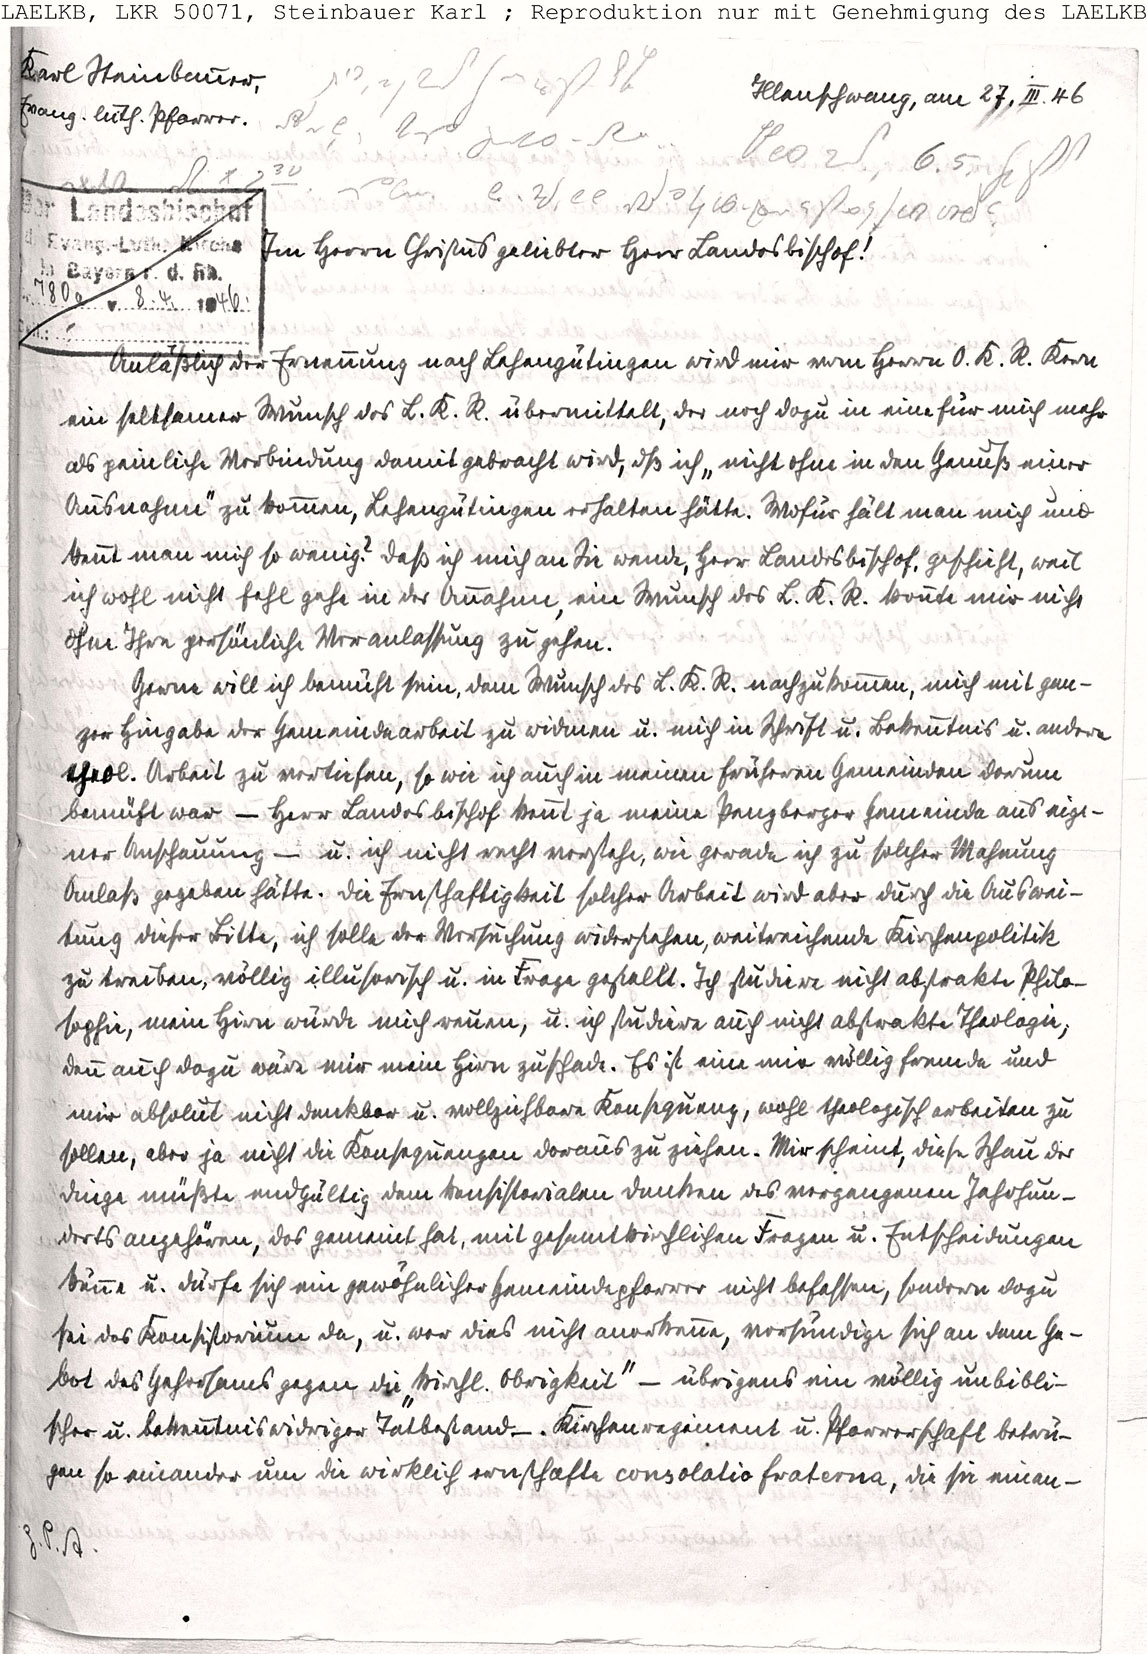 LAELKB, LKR 50071, Steinbauer Karl ; Reproduktion nur mit Genehmigung des LAELKB
Karl Steinbauer,
Evang. luth. Pfarrer.
Illenschwang, am 27. III. 46
Der Landesbischof
d. Evang.-Luth. Kirche
in Bayern r. d. Rh.
780 v. 8.4. 1946
Im Herrn Christus geliebter Herr Landesbischof!
Anläßlich der Ernennung nach Lehengütingen wird mir vom Herrn O. K. R. Kern
ein seltsamer Wunsch des L. K. R. übermittelt, der noch dazu in eine für mich mehr
als peinliche Verbindung damit gebracht wird, dß ich „nicht ohne in den Genuß einer
Ausnahme" zu kommen, Lehengütingen erhalten hätte. Wofür hält man mich und
kennt man mich so wenig? Daß ich mich an Sie wende, Herr Landesbischof, geschieht, weil
ich wohl nicht fehl gehe in der Annahme, ein Wunsch des L. K. R. konnte mir nicht
ohne Ihre persönliche Veranlassung zu gehen.
Gerne will ich bemüht sein, dem Wunsch des L. K. R. nachzukommen, mich mit gan-
zer Hingabe der Gemeindearbeit zu widmen u. mich in Schrift u. Bekenntnis u. andere
theol. Arbeit zu vertiefen, so wie ich auch in meinen früheren Gemeinden darum
bemüht war — Herr Landesbischof kennt ja meine Penzberger Gemeinde aus eige-
ner Anschauung — u. ich nicht recht verstehe, wie gerade ich zu solcher Mahnung
Anlaß gegeben hätte. Die Ernsthaftigkeit solcher Arbeit wird aber durch die Auswei-
tung dieser Bitte, ich solle der Versuchung widerstehen, weitreichende Kirchenpolitik
zu treiben, völlig illusorisch u. in Frage gestellt. Ich studiere nicht abstrakte Philo-
sophie, mein Hirn würde mich reuen, u. ich studiere auch nicht abstrakte Theologie,
denn auch dazu wäre mir mein Hirn zu schade. Es ist eine mir völlig fremde und
mir absolut nicht denkbar u. vollziehbare Konsequenz, wohl theologisch arbeiten zu
sollen, aber ja nicht die Konsequenzen daraus zu ziehen. Mir scheint, diese Schau der
Dinge müßte endgültig dem konsistorialen Denken des vergangenen Jahrhun-
derts angehören, das gemeint hat, mit gesamtkirchlichen Fragen u. Entscheidungen
könne u. dürfe sich ein gewöhnlicher Gemeindepfarrer nicht befassen, sondern dazu
sei das Konsistorium da, u. wer dies nicht anerkenne, versündige sich an dem Ge-
bot des Gehorsams gegen die „kirchl. Obrigkeit" — übrigens ein völlig unbibli-
scher u. bekenntniswidriger Tatbestand —. Kirchenregiment u. Pfarrerschaft betrü-
gen so einander um die wirklich ernsthafte consolatio fraterna, die sie einan-